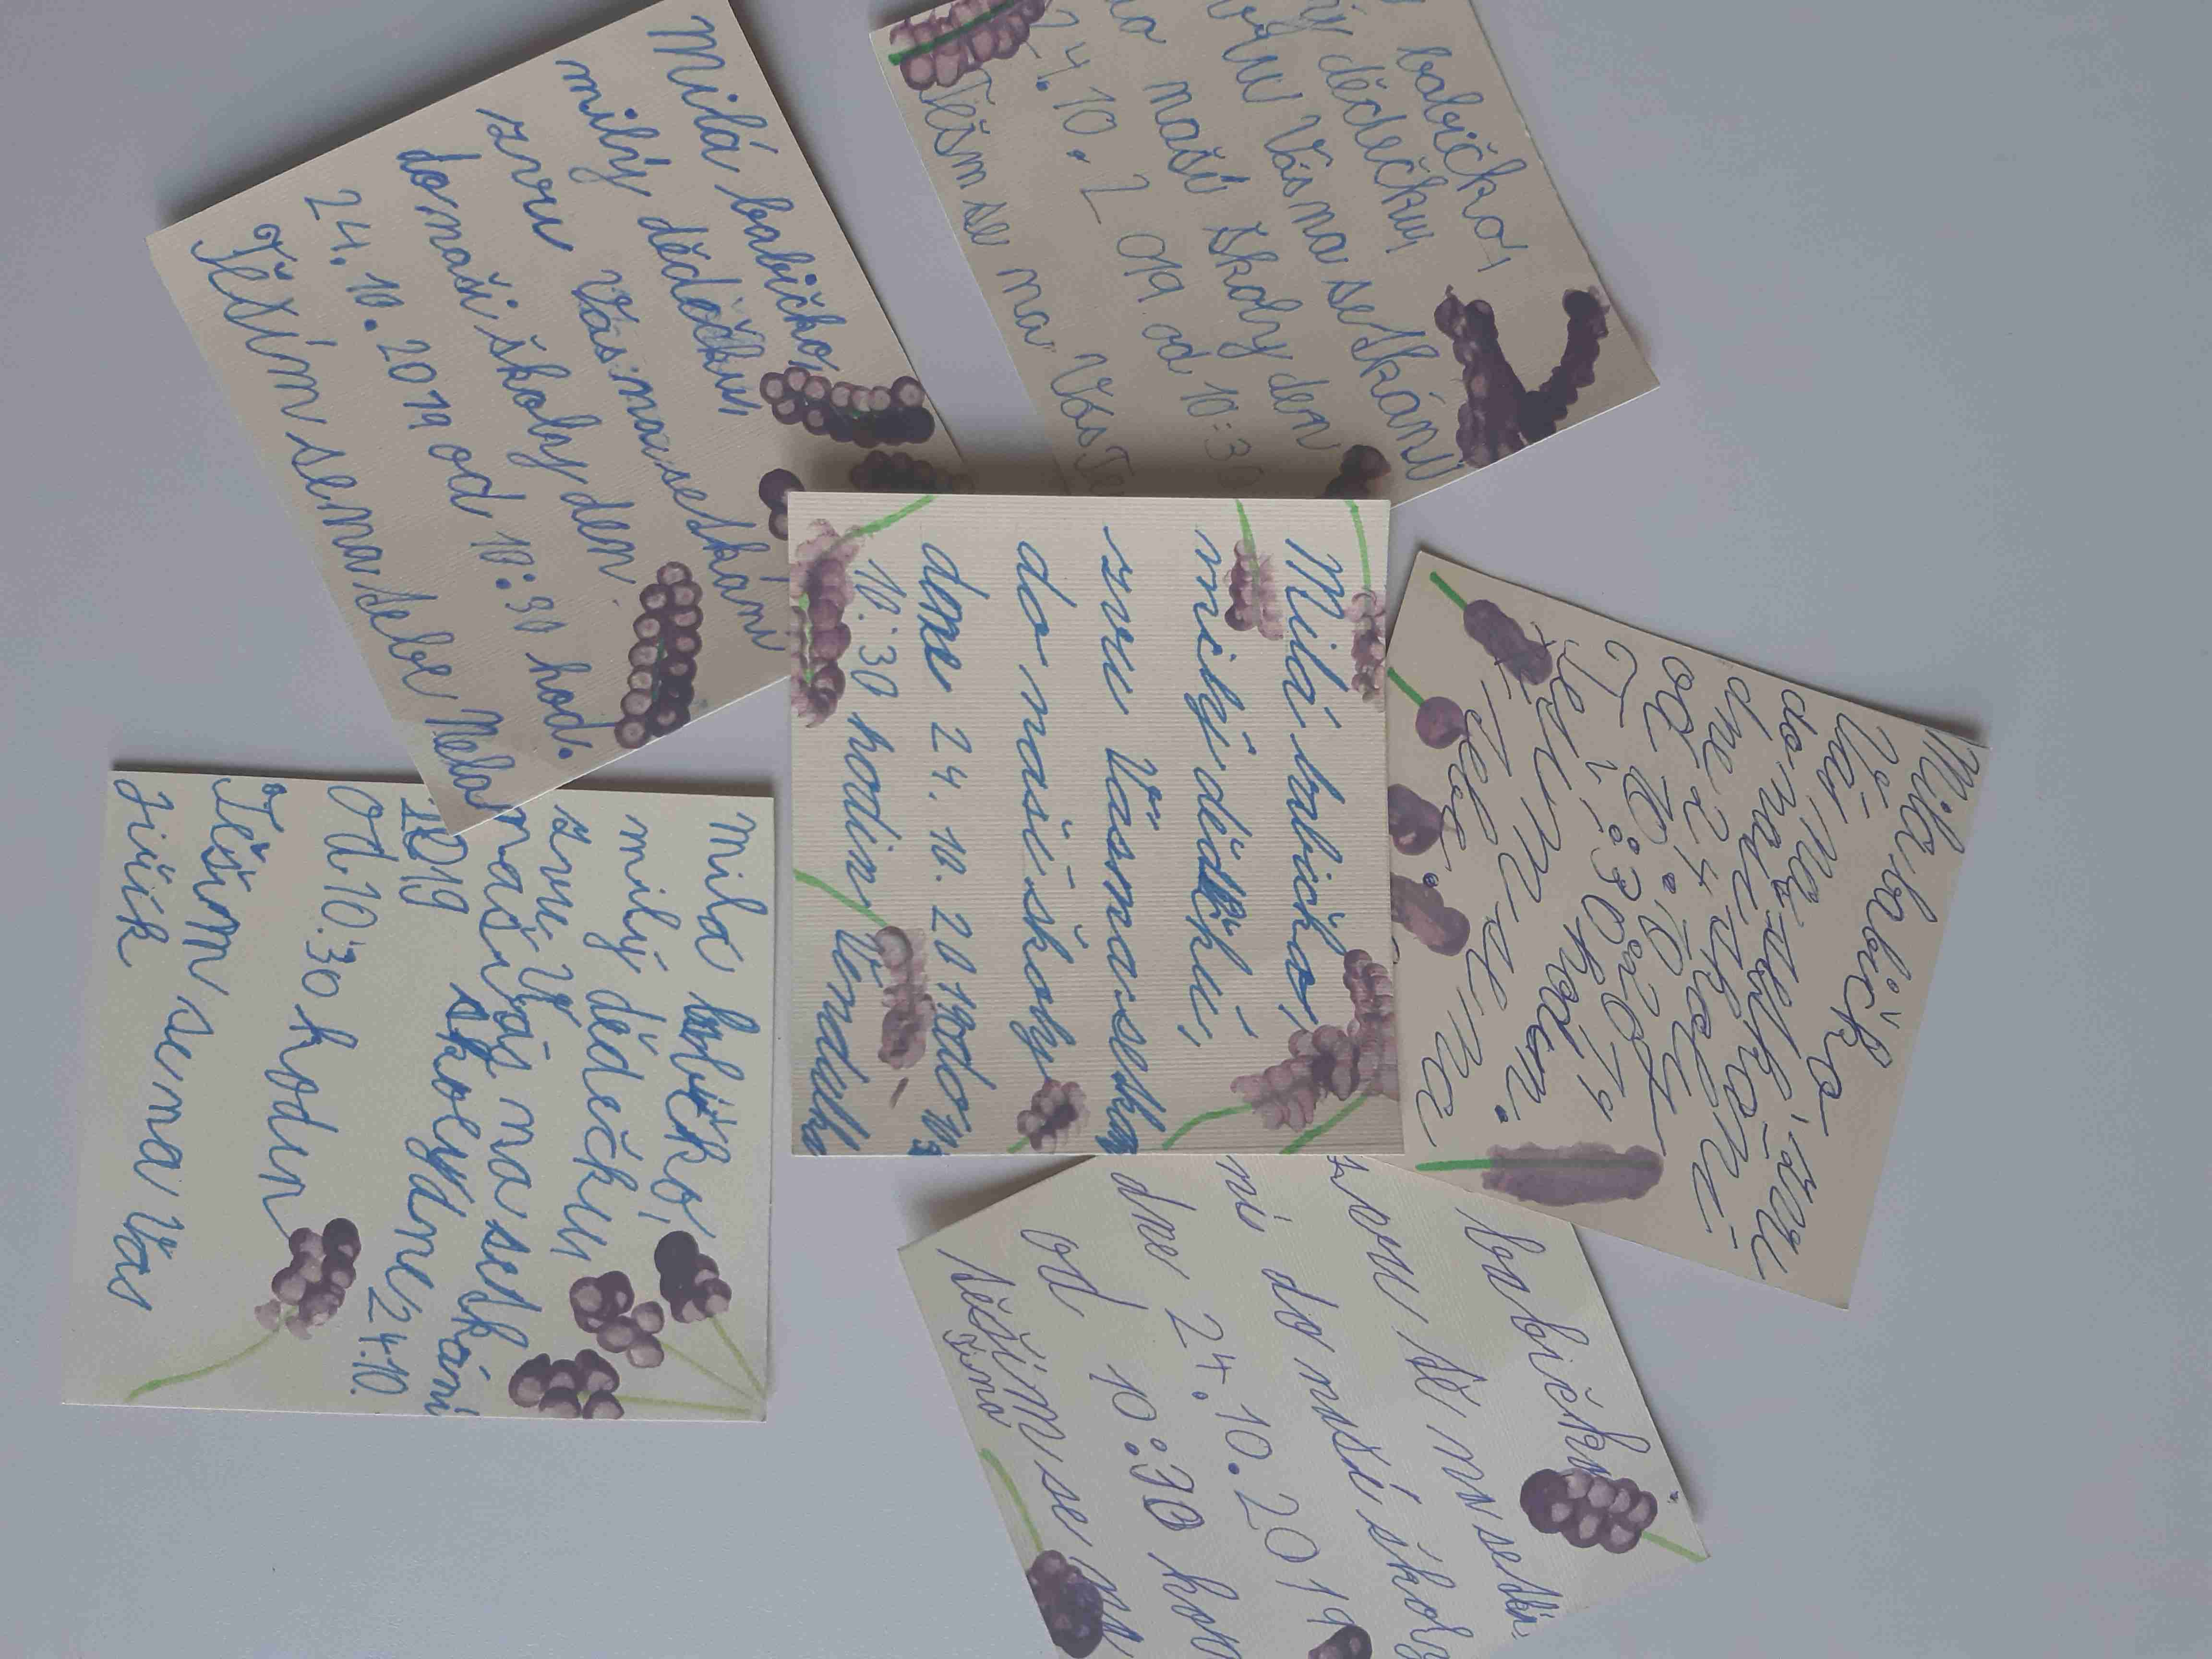 Milá babičko,
milý dědečku,
zvu Vás na setkání
do naší školy den
24. 10. 2019 od 10:30 hod.
Těším se na tebe Nela
babičko,
dědečku
Vás na setkání
naší školy den
24. 10. 2019 od 10:30
Těším se na Vás
Milá babičko,
milý dědečku,
zvu Vás na setkán
do naší školy
dne 24. 10. 2019 od 10
10:30 hodin Vendulka
Mila babičko
zvu
Vás na setkani
do naši školy
dne 24. 10. 2019
od 10:30 hodin.
Tešim se na
tebe.
mila babičko,
milý dědečku
zvu V
Vás na setkání
naši školy dne 24.10.
2019
od 10:30 hodin
Těšim se na Vás
Jiřík
babičku
zvu tě na setká
ní do naší školy
dne 24. 10. 2019
od 10:30 hod
Těším se na